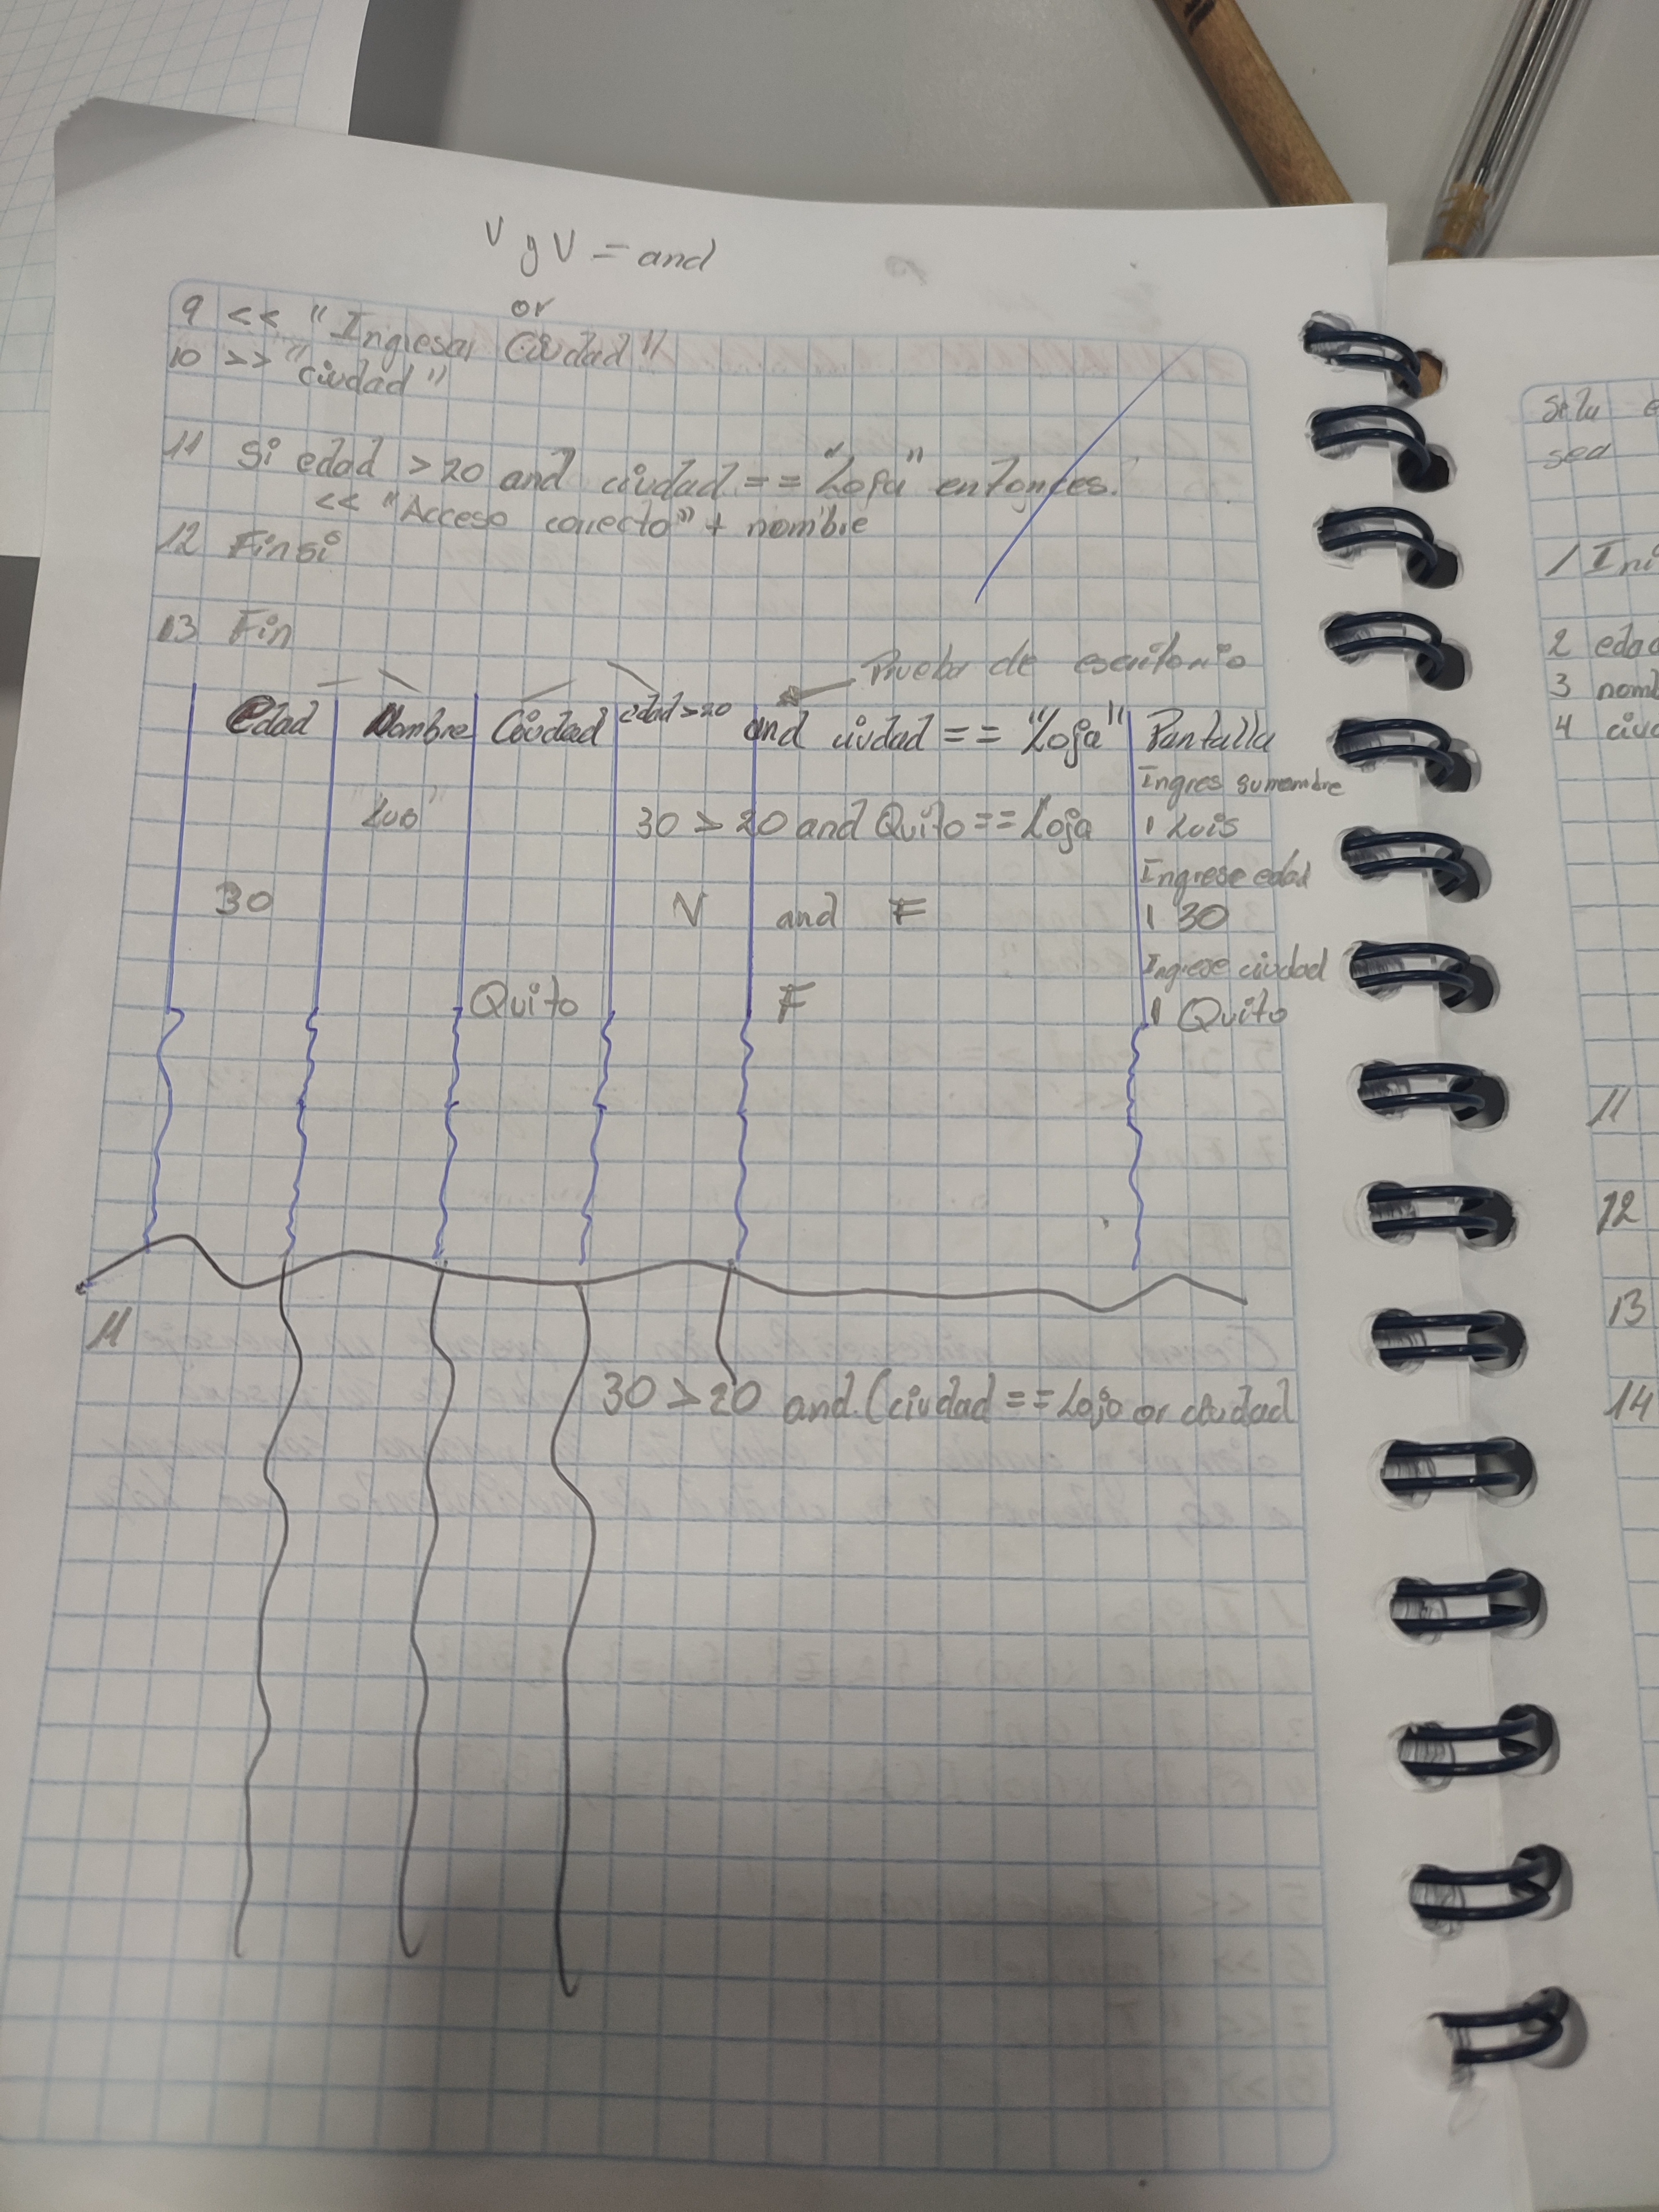 V y V = and
or
9 << "Ingresar Ciudad"
10 >> "ciudad"
11 Si edad > 20 and ciudad == "Loja" entonces.
<< "Acceso correcto" + nombre
12 Finsi
13 Fin
Prueba de escritorio
Edad Nombre Ciudad edad>20 and ciudad == "Loja" Pantalla
Ingres su nombre
30 > 20 and Quito == Loja Luis
Ingrese edad
30 V and F 30
Ingrese ciudad
Quito F Quito
11
30 > 20 and (ciudad == Loja or ciudad
Selu
sea
1 Ini
2 edad
3 nomb
4 ciud
11
12
13
14